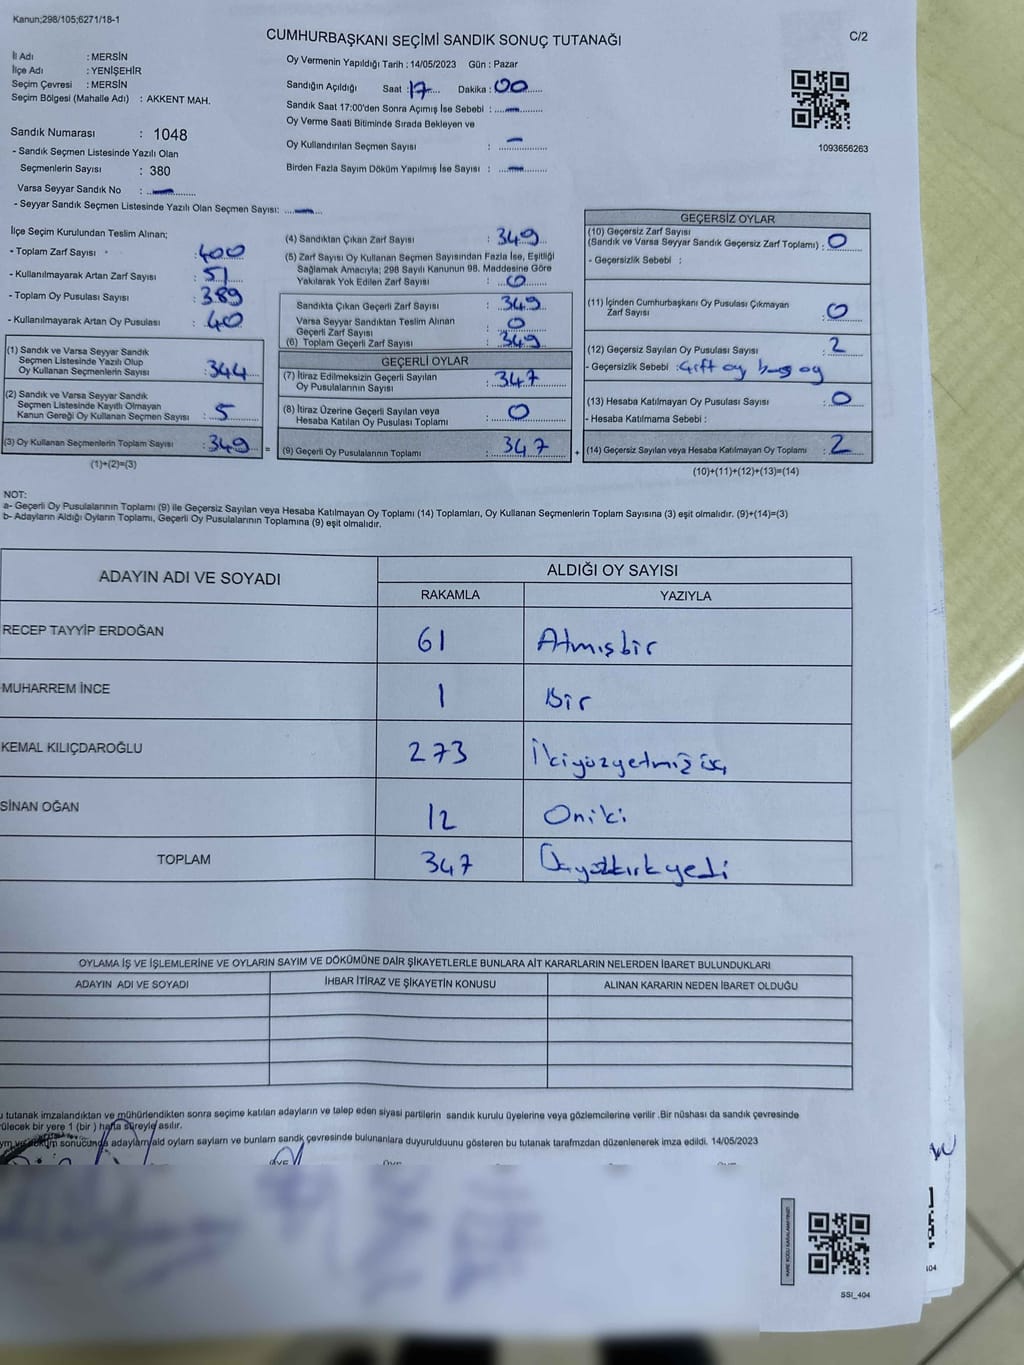 Kanun;298/105;6271/18-1
CUMHURBAŞKANI SEÇİMİ SANDIK SONUÇ TUTANAĞI
C/2
İl Adı : MERSİN
İlçe Adı : YENİŞEHİR
Seçim Çevresi : MERSİN
Seçim Bölgesi (Mahalle Adı) : AKKENT MAH.
Oy Vermenin Yapıldığı Tarih : 14/05/2023 Gün : Pazar
Sandığın Açıldığı Saat : 17 Dakika : 00
Sandık Saat 17:00'den Sonra Açımış İse Sebebi : -
Oy Verme Saati Bitiminde Sırada Bekleyen ve
Oy Kullandırılan Seçmen Sayısı : -
Birden Fazla Sayım Döküm Yapılmış İse Sayısı : -
1093656263
Sandık Numarası : 1048
- Sandık Seçmen Listesinde Yazılı Olan
Seçmenlerin Sayısı : 380
Varsa Seyyar Sandık No : -
- Seyyar Sandık Seçmen Listesinde Yazılı Olan Seçmen Sayısı: -
İlçe Seçim Kurulundan Teslim Alınan;
- Toplam Zarf Sayısı : 400
- Kullanılmayarak Artan Zarf Sayısı : 51
- Toplam Oy Pusulası Sayısı : 389
- Kullanılmayarak Artan Oy Pusulası : 40
(1) Sandık ve Varsa Seyyar Sandık
Seçmen Listesinde Yazılı Olup
Oy Kullanan Seçmenlerin Sayısı : 344
(2) Sandık ve Varsa Seyyar Sandık
Seçmen Listesinde Kayıtlı Olmayan
Kanun Gereği Oy Kullanan Seçmen Sayısı : 5
(3) Oy Kullanan Seçmenlerin Toplam Sayısı : 349 =
(1)+(2)=(3)
(4) Sandıktan Çıkan Zarf Sayısı : 349
(5) Zarf Sayısı Oy Kullanan Seçmen Sayısından Fazla İse, Eşitliği
Sağlamak Amacıyla; 298 Sayılı Kanunun 98. Maddesine Göre
Yakılarak Yok Edilen Zarf Sayısı : 0
Sandıkta Çıkan Geçerli Zarf Sayısı : 349
Varsa Seyyar Sandıktan Teslim Alınan
Geçerli Zarf Sayısı : 0
(6) Toplam Geçerli Zarf Sayısı : 349
GEÇERLİ OYLAR
(7) İtiraz Edilmeksizin Geçerli Sayılan
Oy Pusulalarının Sayısı : 347
(8) İtiraz Üzerine Geçerli Sayılan veya
Hesaba Katılan Oy Pusulası Toplamı : 0
(9) Geçerli Oy Pusulalarının Toplamı : 347 +
GEÇERSİZ OYLAR
(10) Geçersiz Zarf Sayısı
(Sandık ve Varsa Seyyar Sandık Geçersiz Zarf Toplamı) : 0
- Geçersizlik Sebebi :
(11) İçinden Cumhurbaşkanı Oy Pusulası Çıkmayan
Zarf Sayısı : 0
(12) Geçersiz Sayılan Oy Pusulası Sayısı : 2
- Geçersizlik Sebebi : Çift oy boş oy
(13) Hesaba Katılmayan Oy Pusulası Sayısı : 0
- Hesaba Katılmama Sebebi :
(14) Geçersiz Sayılan veya Hesaba Katılmayan Oy Toplamı : 2
(10)+(11)+(12)+(13)=(14)
NOT:
a- Geçerli Oy Pusulalarının Toplamı (9) ile Geçersiz Sayılan veya Hesaba Katılmayan Oy Toplamı (14) Toplamları, Oy Kullanan Seçmenlerin Toplam Sayısına (3) eşit olmalıdır. (9)+(14)=(3)
b- Adayların Aldığı Oyların Toplamı, Geçerli Oy Pusulalarının Toplamına (9) eşit olmalıdır.
ADAYIN ADI VE SOYADI
ALDIĞI OY SAYISI
RAKAMLA YAZIYLA
RECEP TAYYİP ERDOĞAN 61 Atmışbir
MUHARREM İNCE 1 Bir
KEMAL KILIÇDAROĞLU 273 İkiyüzyetmiş üç
SİNAN OĞAN 12 Oniki
TOPLAM 347 Üçyüzkırkyedi
OYLAMA İŞ VE İŞLEMLERİNE VE OYLARIN SAYIM VE DÖKÜMÜNE DAİR ŞİKAYETLERLE BUNLARA AİT KARARLARIN NELERDEN İBARET BULUNDUKLARI
ADAYIN ADI VE SOYADI İHBAR İTİRAZ VE ŞİKAYETİN KONUSU ALINAN KARARIN NEDEN İBARET OLDUĞU
u tutanak imzalandıktan ve mühürlendikten sonra seçime katılan adayların ve talep eden siyasi partilerin sandık kurulu üyelerine veya gözlemcilerine verilir .Bir nüshası da sandık çevresinde
rülecek bir yere 1 (bir ) hafta süreyle asılır.
sonucunda adaylarn ald oylarn saylarn ve bunlarn sandk çevresinde bulunanlara duyurulduunu gösteren bu tutanak tarafmzdan düzenlenerek imza edildi. 14/05/2023
SSI_404
404